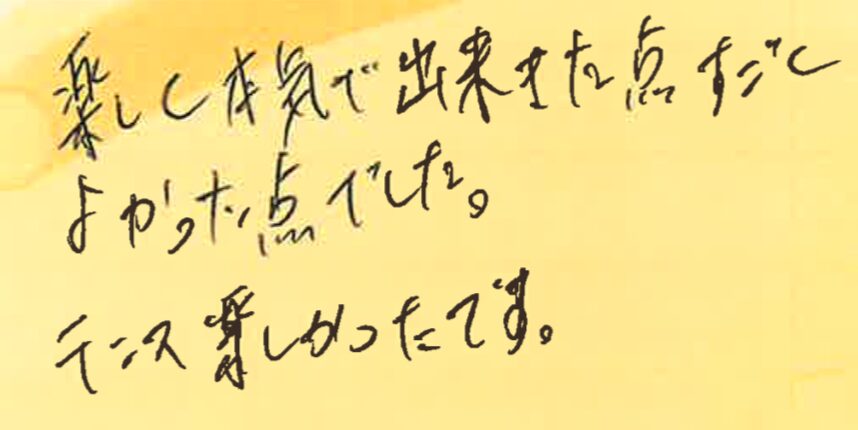 楽しく本気で出来ました点すごく
よかった点でした。
テニス楽しかったです。